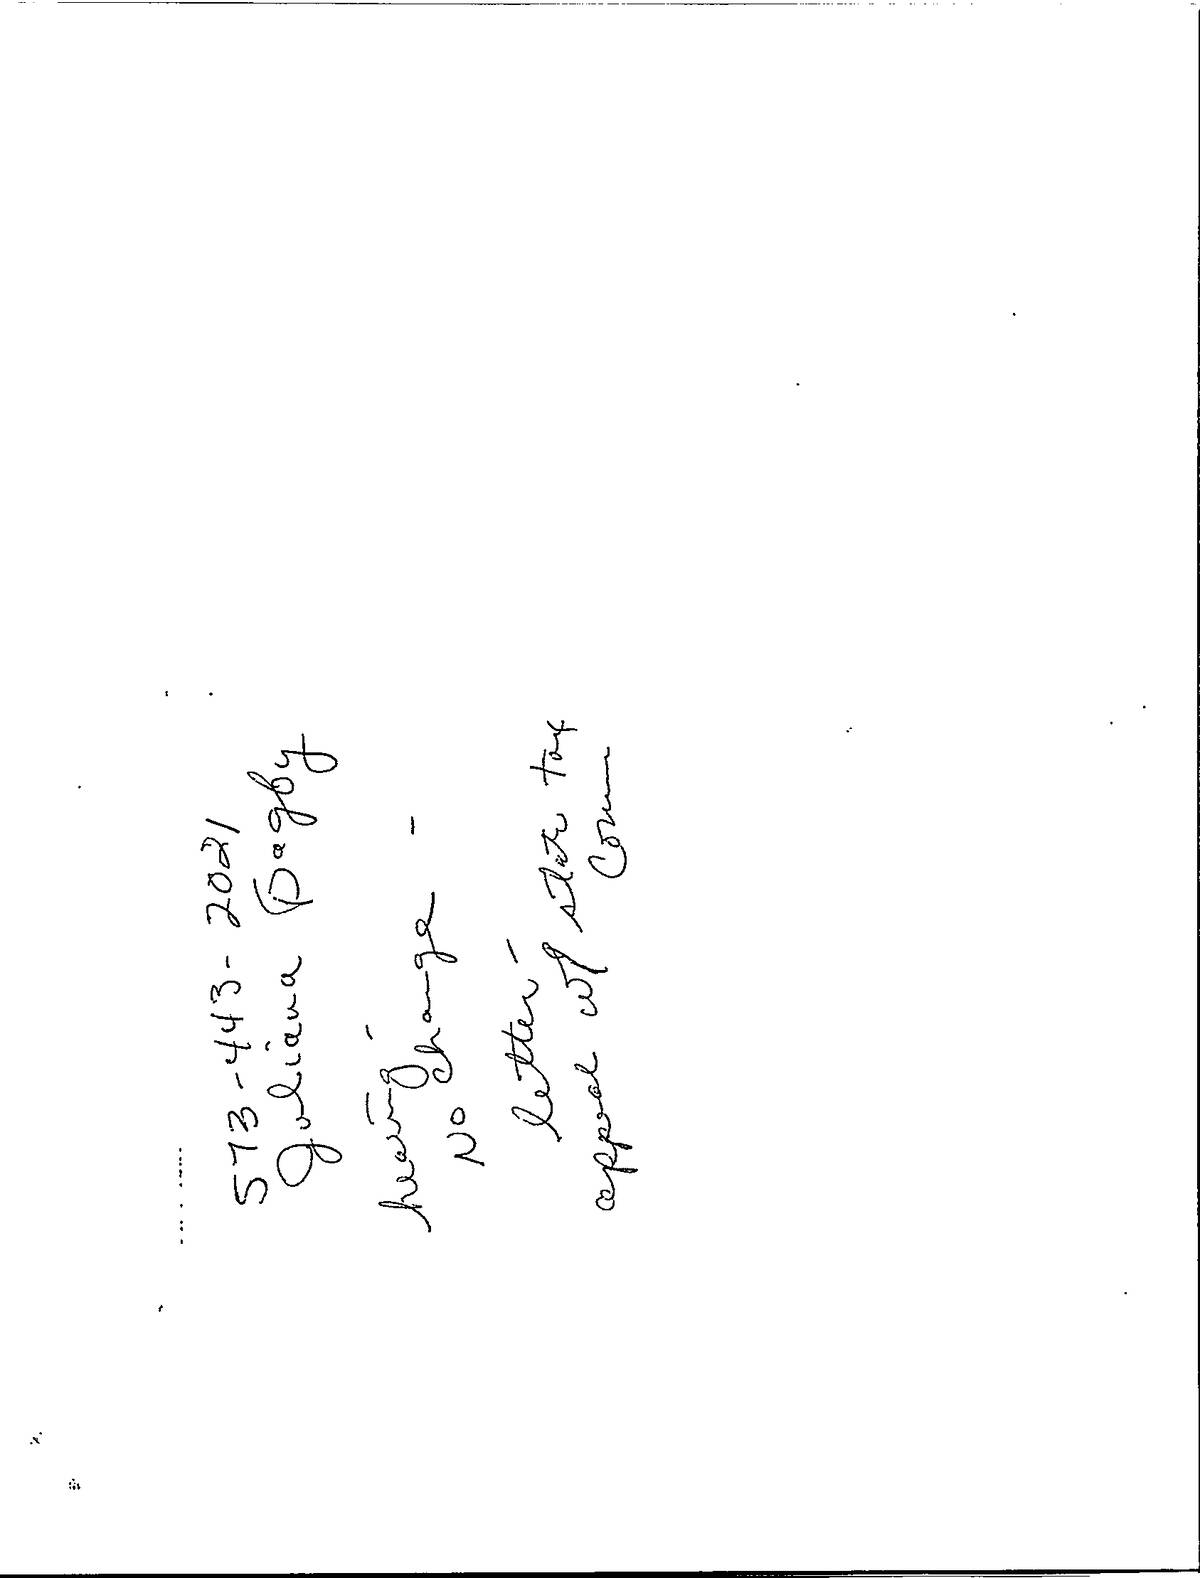 573-443-2021
Juliana Dagby
hearing -
No change -
letter -
appeal w/ state tax
Comm